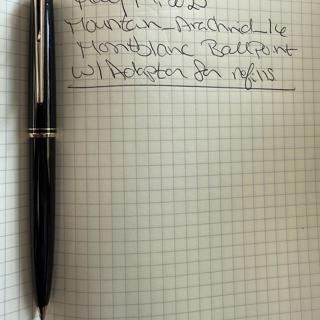 Mountain_Arachnid_14
Montblanc Ballpoint
W/Adapter for refills